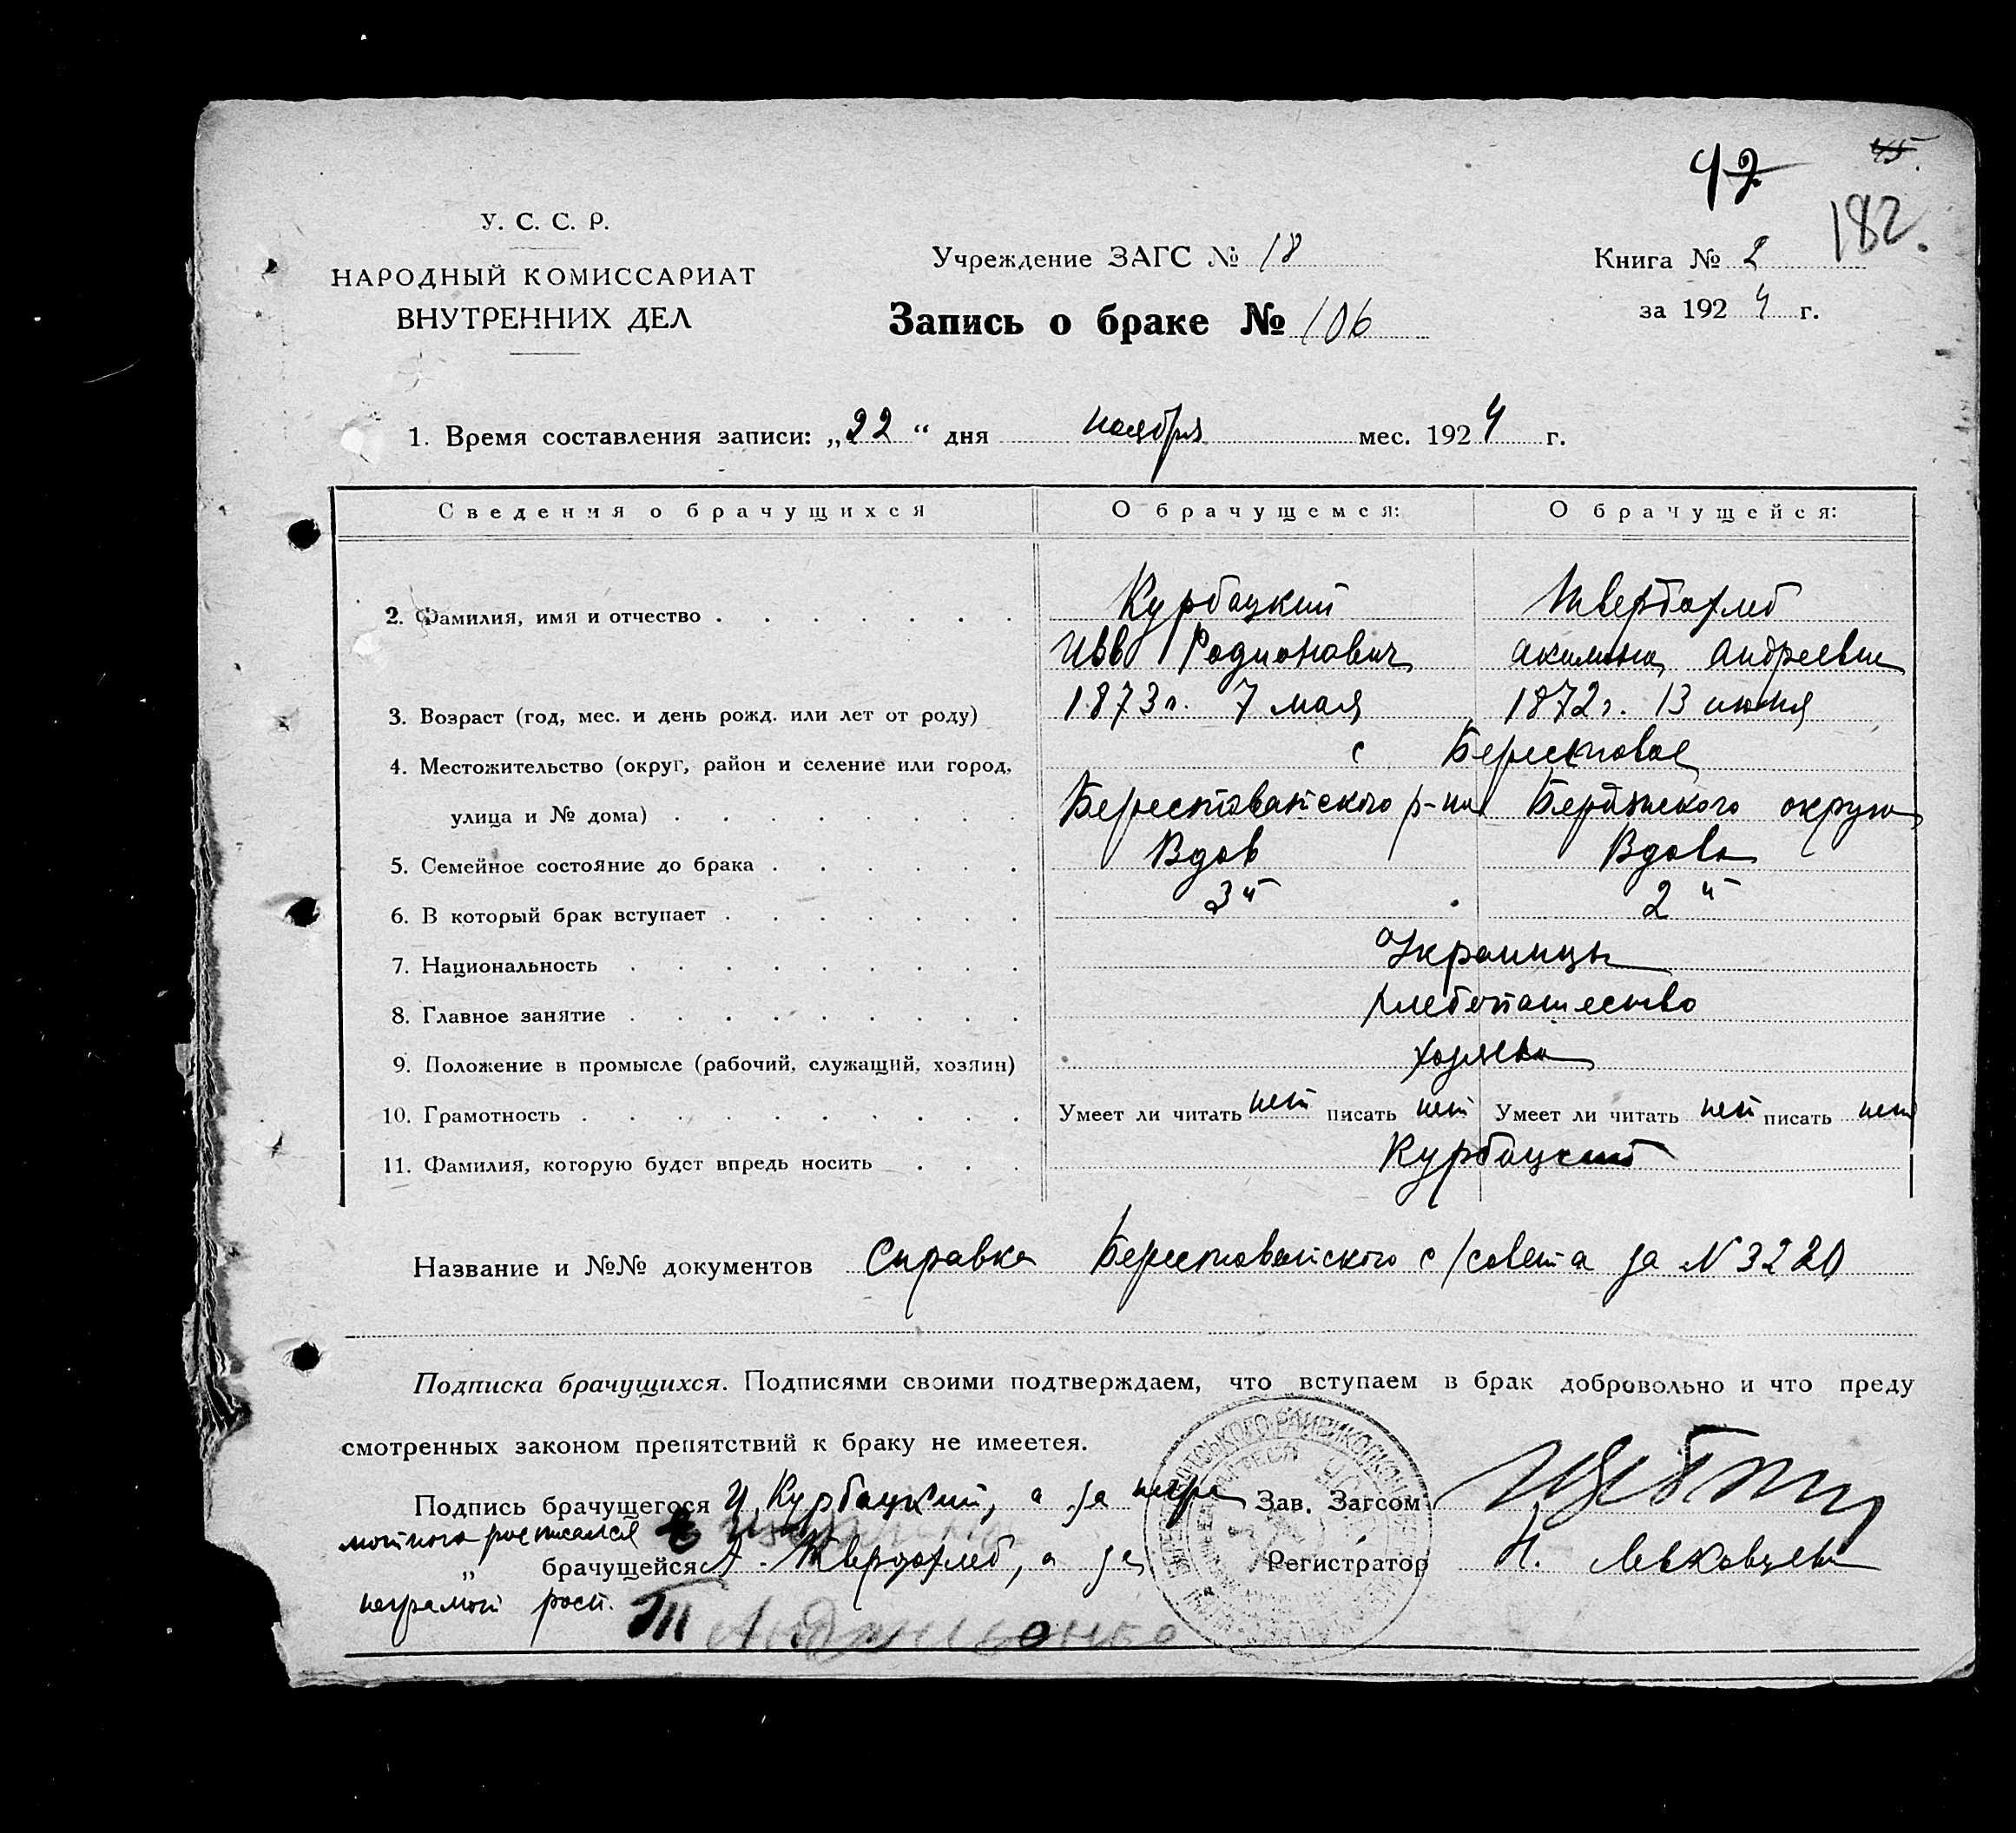 42 45
182.
У. С. С. Р.
НАРОДНЫЙ КОМИССАРИАТ
ВНУТРЕННИХ ДЕЛ
Учреждение ЗАГС № 18
Запись о браке № 106
Книга № 2
за 1924 г.
1. Время составления записи: „22“ дня ноября мес. 1924 г.
Сведения о брачущихся О брачущемся: О брачущейся:
2. Фамилия, имя и отчество Курбацкий Твердохлеб
Родионович Акилина Андреевн
3. Возраст (год, мес. и день рожд. или лет от роду) 1873 г. 7 мая 1872 г. 13 июня
4. Местожительство (округ, район и селение или город, с Берестовое
улица и № дома) Берестоватского р-на Бердянского округа
5. Семейное состояние до брака Вдов Вдова
6. В который брак вступает 3й 2й
7. Национальность Украинцы
8. Главное занятие хлебопашество
9. Положение в промысле (рабочий, служащий, хозяин) хозяева
10. Грамотность Умеет ли читать нет писать нет Умеет ли читать нет писать нет
11. Фамилия, которую будет впредь носить Курбацкий
Название и №№ документов Справка Берестоватского с/совета за № 3220
Подписка брачущихся. Подписями своими подтверждаем, что вступаем в брак добровольно и что преду
смотренных законом препятствий к браку не имеется.
Подпись брачущегося И. Курбацкий, а за негра Зав. Загсом
мотного росписался
„ брачущейся А. Твердохлеб, а за Регистратор Н.
неграмот росп.